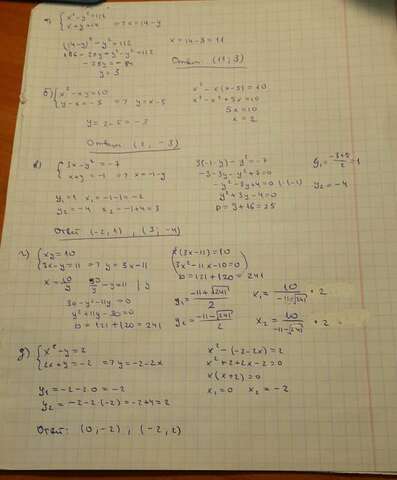 а) { x² - y² = 112
x + y = 14 => x = 14 - y
(14 - y)² - y² = 112
196 - 28y + y² - y² = 112
- 28y = - 84
y = 3
x = 14 - 3 = 11
Ответ: (11; 3)
б) { x² - xy = 10
y - x = -5 => y = x - 5
x² - x(x - 5) = 10
x² - x² + 5x = 10
5x = 10
x = 2
y = 2 - 5 = -3
Ответ: (2, -3)
в) { 3x - y² = -7
x + y = -1 => x = -1 - y
3(-1 - y) - y² = -7
-3 - 3y - y² + 7 = 0
-y² - 3y + 4 = 0 | · (-1)
y² + 3y - 4 = 0
D = 9 + 16 = 25
y₁ = (-3+5)/2 = 1
y₂ = -4
y₁ = 1 x₁ = -1 - 1 = -2
y₂ = -4 x₂ = -1 + 4 = 3
Ответ (-2, 1), (3; -4)
г) { xy = 10
3x - y = 11 => y = 3x - 11
x(3x - 11) = 10
3x² - 11x - 10 = 0
D = 121 + 120 = 241
x = 10/y 30/y - y = 11 | y
30 - y² - 11y = 0
y² + 11y - 30 = 0
D = 121 + 120 = 241
y₁ = (-11 + √241)/2
y₂ = (-11 - √241)/2
x₁ = 10/(-11+√241) · 2
x₂ = 10/(-11-√241) · 2
д) { x² - y = 2
2x + y = -2 => y = -2 - 2x
x² - (-2 - 2x) = 2
x² + 2 + 2x - 2 = 0
x(x + 2) = 0
x₁ = 0 x₂ = -2
y₁ = -2 - 2 · 0 = -2
y₂ = -2 - 2 · (-2) = -2 + 4 = 2
Ответ: (0, -2), (-2, 2)